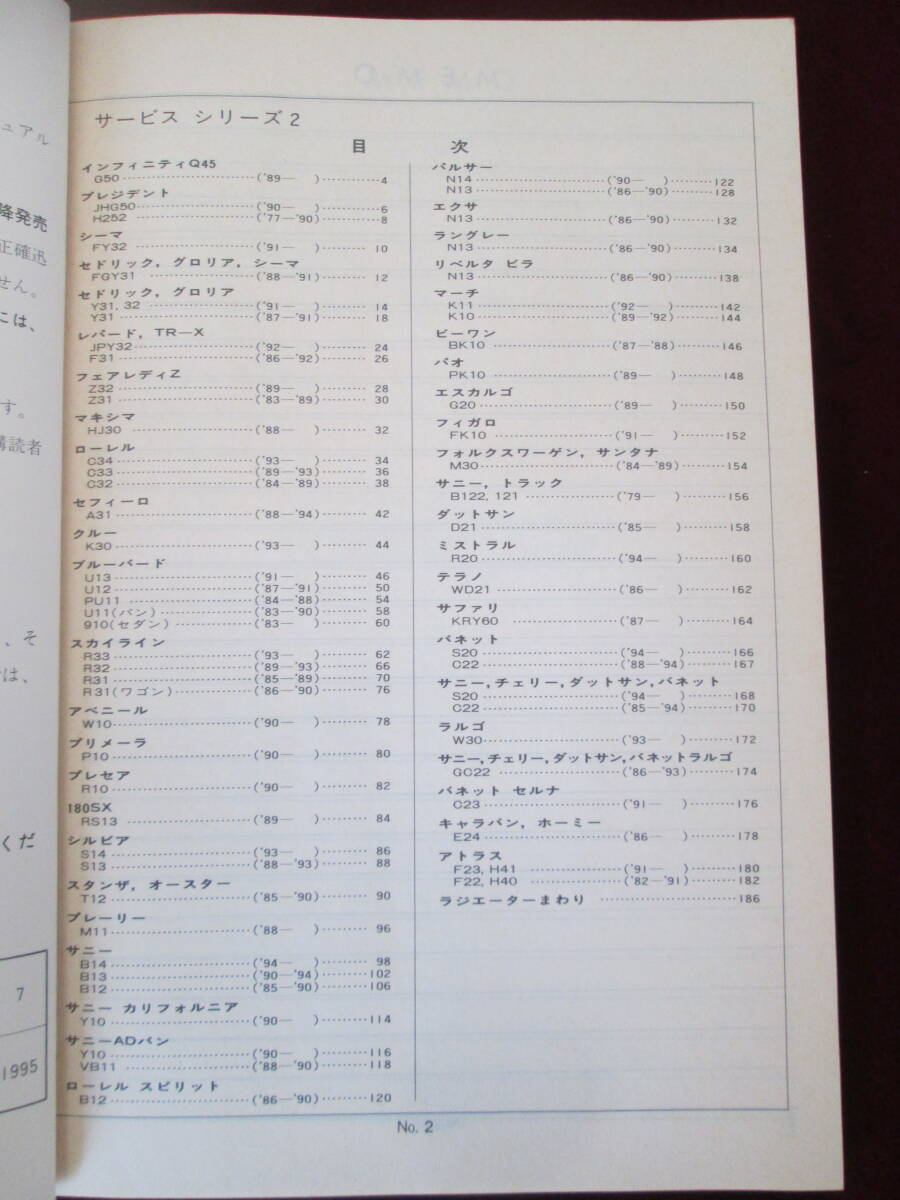 ュアル
降発売
正確迅
せん。
には、
す。
購読者
、そ
は、
くだ
7
1995
サービス シリーズ2
目 次
インフィニティQ45
G50 ('89― ) 4
プレジデント
JHG50 ('90― ) 6
H252 ('77―'90) 8
シーマ
FY32 ('91― ) 10
セドリック, グロリア, シーマ
FGY31 ('88―'91) 12
セドリック, グロリア
Y31, 32 ('91― ) 14
Y31 ('87―'91) 18
レパード, TR―X
JPY32 ('92― ) 24
F31 ('86―'92) 26
フェアレディZ
Z32 ('89― ) 28
Z31 ('83―'89) 30
マキシマ
HJ30 ('88― ) 32
ローレル
C34 ('93― ) 34
C33 ('89―'93) 36
C32 ('84―'89) 38
セフィーロ
A31 ('88―'94) 42
クルー
K30 ('93― ) 44
ブルーバード
U13 ('91― ) 46
U12 ('87―'91) 50
PU11 ('84―'88) 54
U11(バン) ('83―'90) 58
910(セダン) ('83― ) 60
スカイライン
R33 ('93― ) 62
R32 ('89―'93) 66
R31 ('85―'89) 70
R31(ワゴン) ('86―'90) 76
アベニール
W10 ('90― ) 78
プリメーラ
P10 ('90― ) 80
プレセア
R10 ('90― ) 82
180SX
RS13 ('89― ) 84
シルビア
S14 ('93― ) 86
S13 ('88―'93) 88
スタンザ, オースター
T12 ('85―'90) 90
プレーリー
M11 ('88― ) 96
サニー
B14 ('94― ) 98
B13 ('90―'94) 102
B12 ('85―'90) 106
サニー カリフォルニア
Y10 ('90― ) 114
サニーADバン
Y10 ('90― ) 116
VB11 ('88―'90) 118
ローレル スピリット
B12 ('86―'90) 120
パルサー
N14 ('90― ) 122
N13 ('86―'90) 128
エクサ
N13 ('86―'90) 132
ラングレー
N13 ('86―'90) 134
リベルタ ビラ
N13 ('86―'90) 138
マーチ
K11 ('92― ) 142
K10 ('89―'92) 144
ビーワン
BK10 ('87―'88) 146
パオ
PK10 ('89― ) 148
エスカルゴ
G20 ('89― ) 150
フィガロ
FK10 ('91― ) 152
フォルクスワーゲン, サンタナ
M30 ('84―'89) 154
サニー, トラック
B122, 121 ('79― ) 156
ダットサン
D21 ('85― ) 158
ミストラル
R20 ('94― ) 160
テラノ
WD21 ('86― ) 162
サファリ
KRY60 ('87― ) 164
バネット
S20 ('94― ) 166
C22 ('88―'94) 167
サニー, チェリー, ダットサン, バネット
S20 ('94― ) 168
C22 ('85―'94) 170
ラルゴ
W30 ('93― ) 172
サニー, チェリー, ダットサン, バネットラルゴ
GC22 ('86―'93) 174
バネット セルナ
C23 ('91― ) 176
キャラバン, ホーミー
E24 ('86― ) 178
アトラス
F23, H41 ('91― ) 180
F22, H40 ('82―'91) 182
ラジエーターまわり 186
No. 2